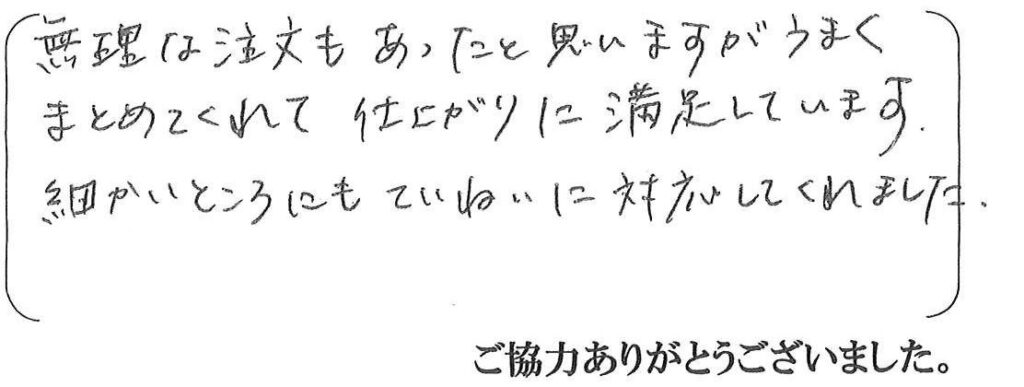 無理な注文もあったと思いますがうまく
まとめてくれて 仕上がりに満足しています.
細かいところにもていねいに対応してくれました.
ご協力ありがとうございました。